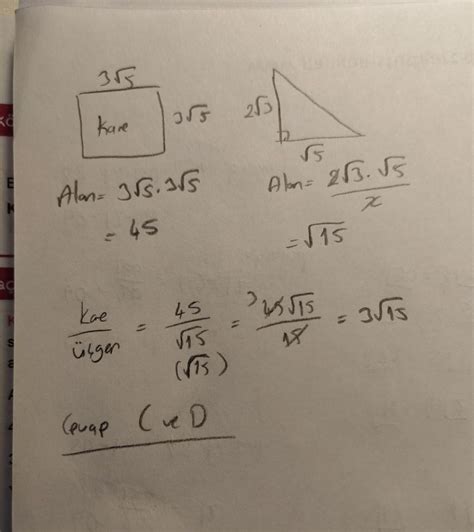 3√5
Kare 3√5
2√3
√5
Alan= 3√5.3√5
= 45
Alan= 2√3.√5 / 2
= √15
Kare / üçgen = 45 / √15 (√15) = 3 45√15 / 15 = 3√15
Cevap C ve D